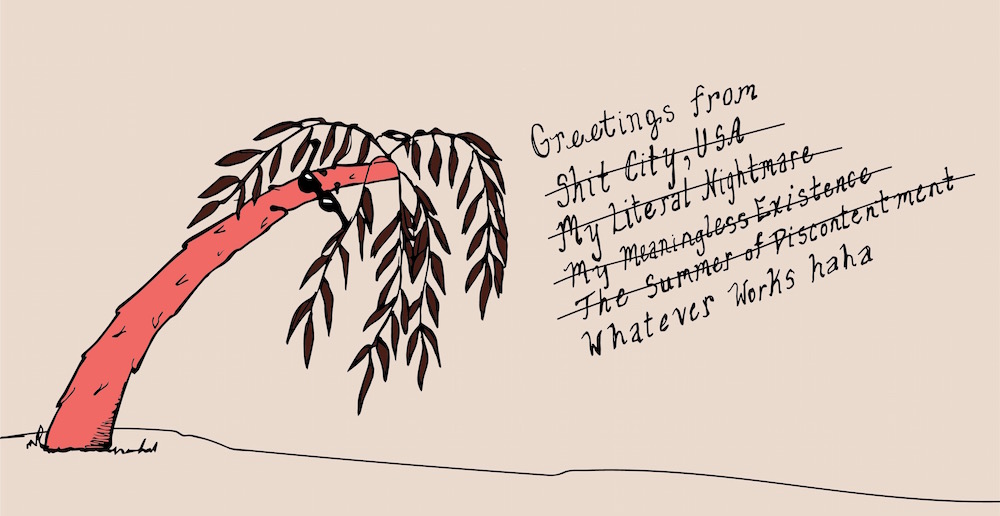 Greetings from
Shit City, USA
My Literal Nightmare
My Meaningless Existence
The Summer of Discontentment
Whatever Works haha